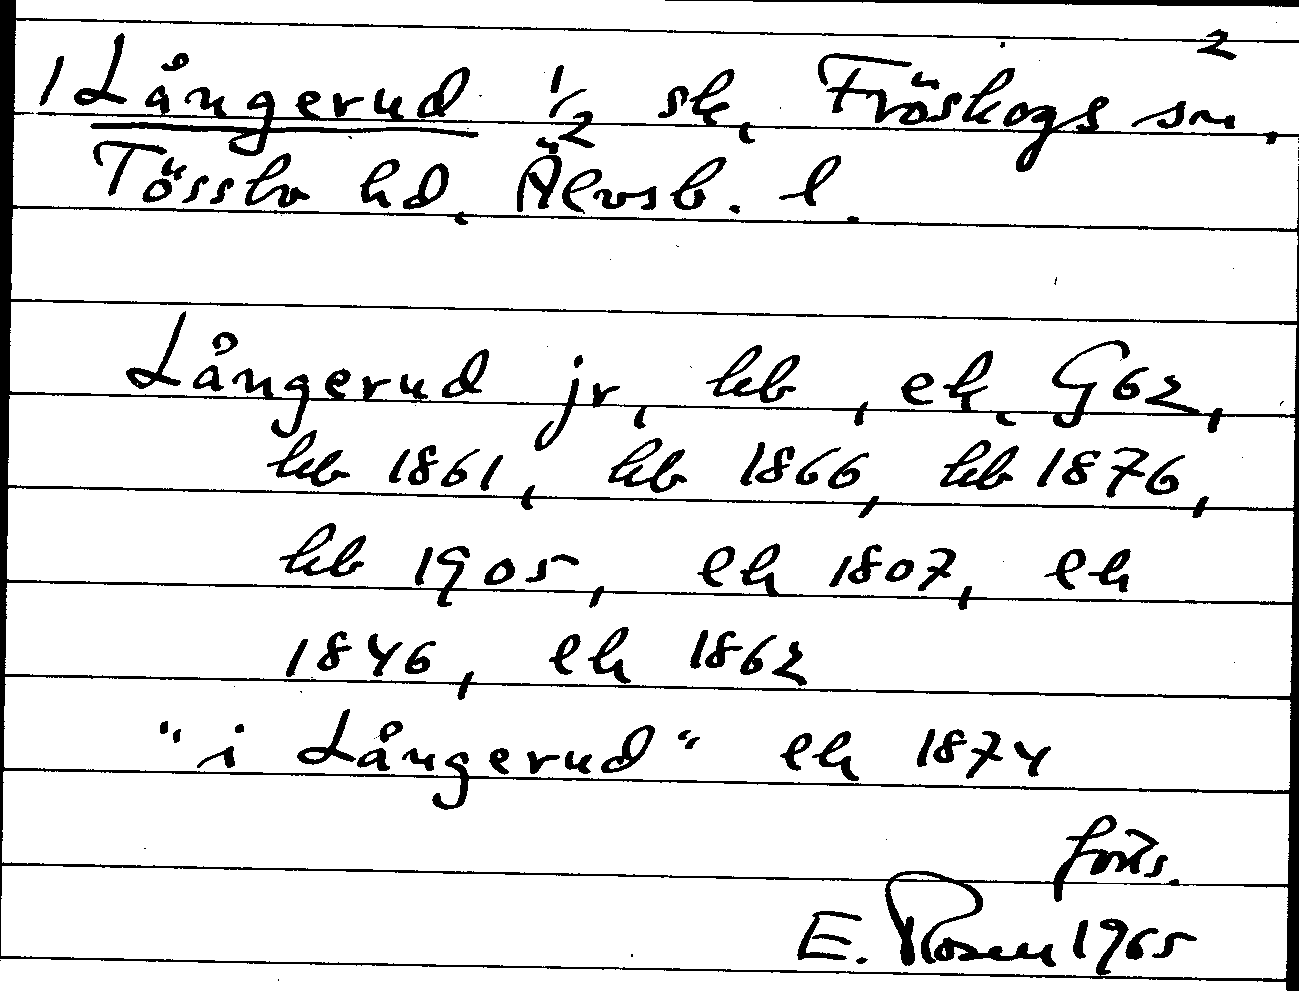 2
1 Långerud 1/2 sk, Fröskogs sn,
Tössbo hd, Älvsb. l.
Långerud jr, hb, ek, G62,
hb 1861, hb 1866, hb 1876,
hb 1905, ek 1807, ek
1846, ek 1862
"i Långerud" ek 1874
forts.
E. Rosen 1965